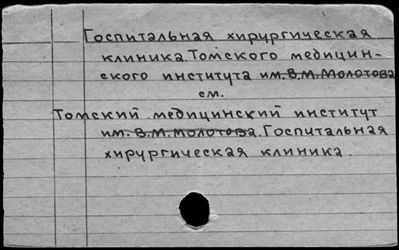 Госпитальная хирургическая
клиника Томского медицин-
ского института им. В.М. Молотова
см.
Томский медицинский институт
им. В.М. Молотова. Госпитальная
хирургическая клиника.